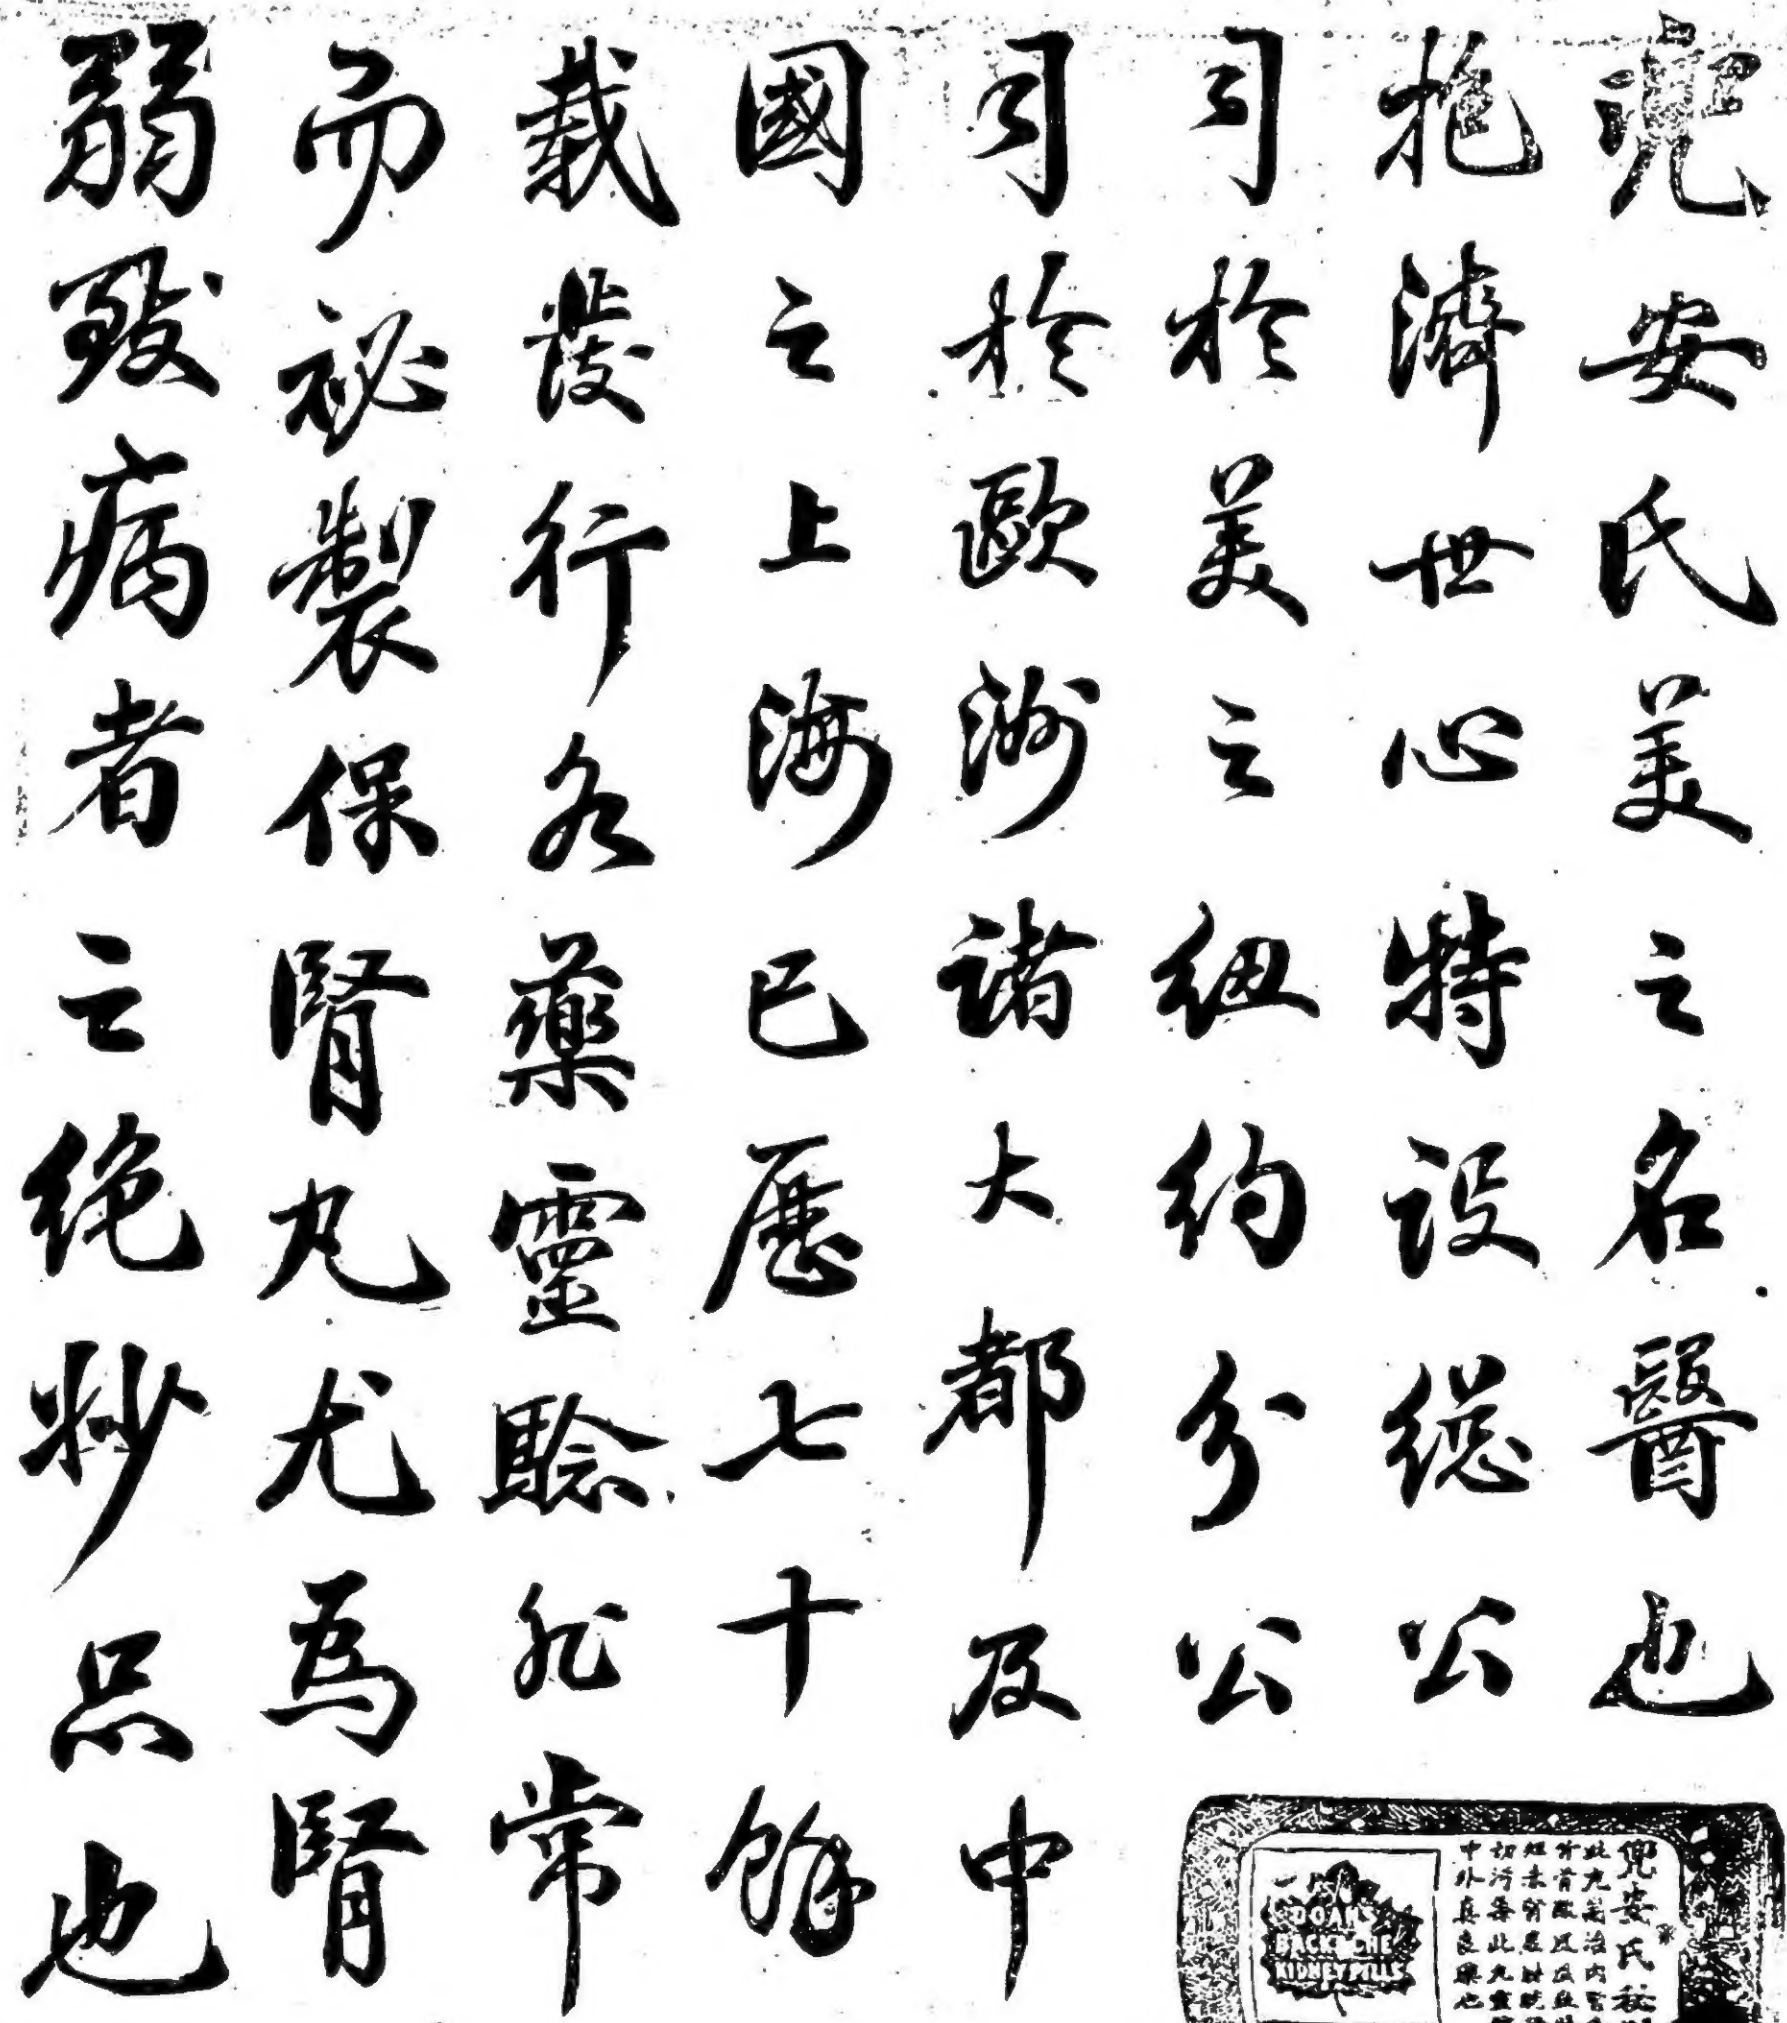 兜安氏美之名醫也
抱濟世心特設總公
司於美之紐約分公
司於歐洲諸大都及中
國之上海已歷七十餘
載發行各藥靈驗非常
而祕製保腎丸尤為腎
弱致病者之絕妙品也
兜安氏秘
DOAN'S
BACKACHE
KIDNEY PILLS